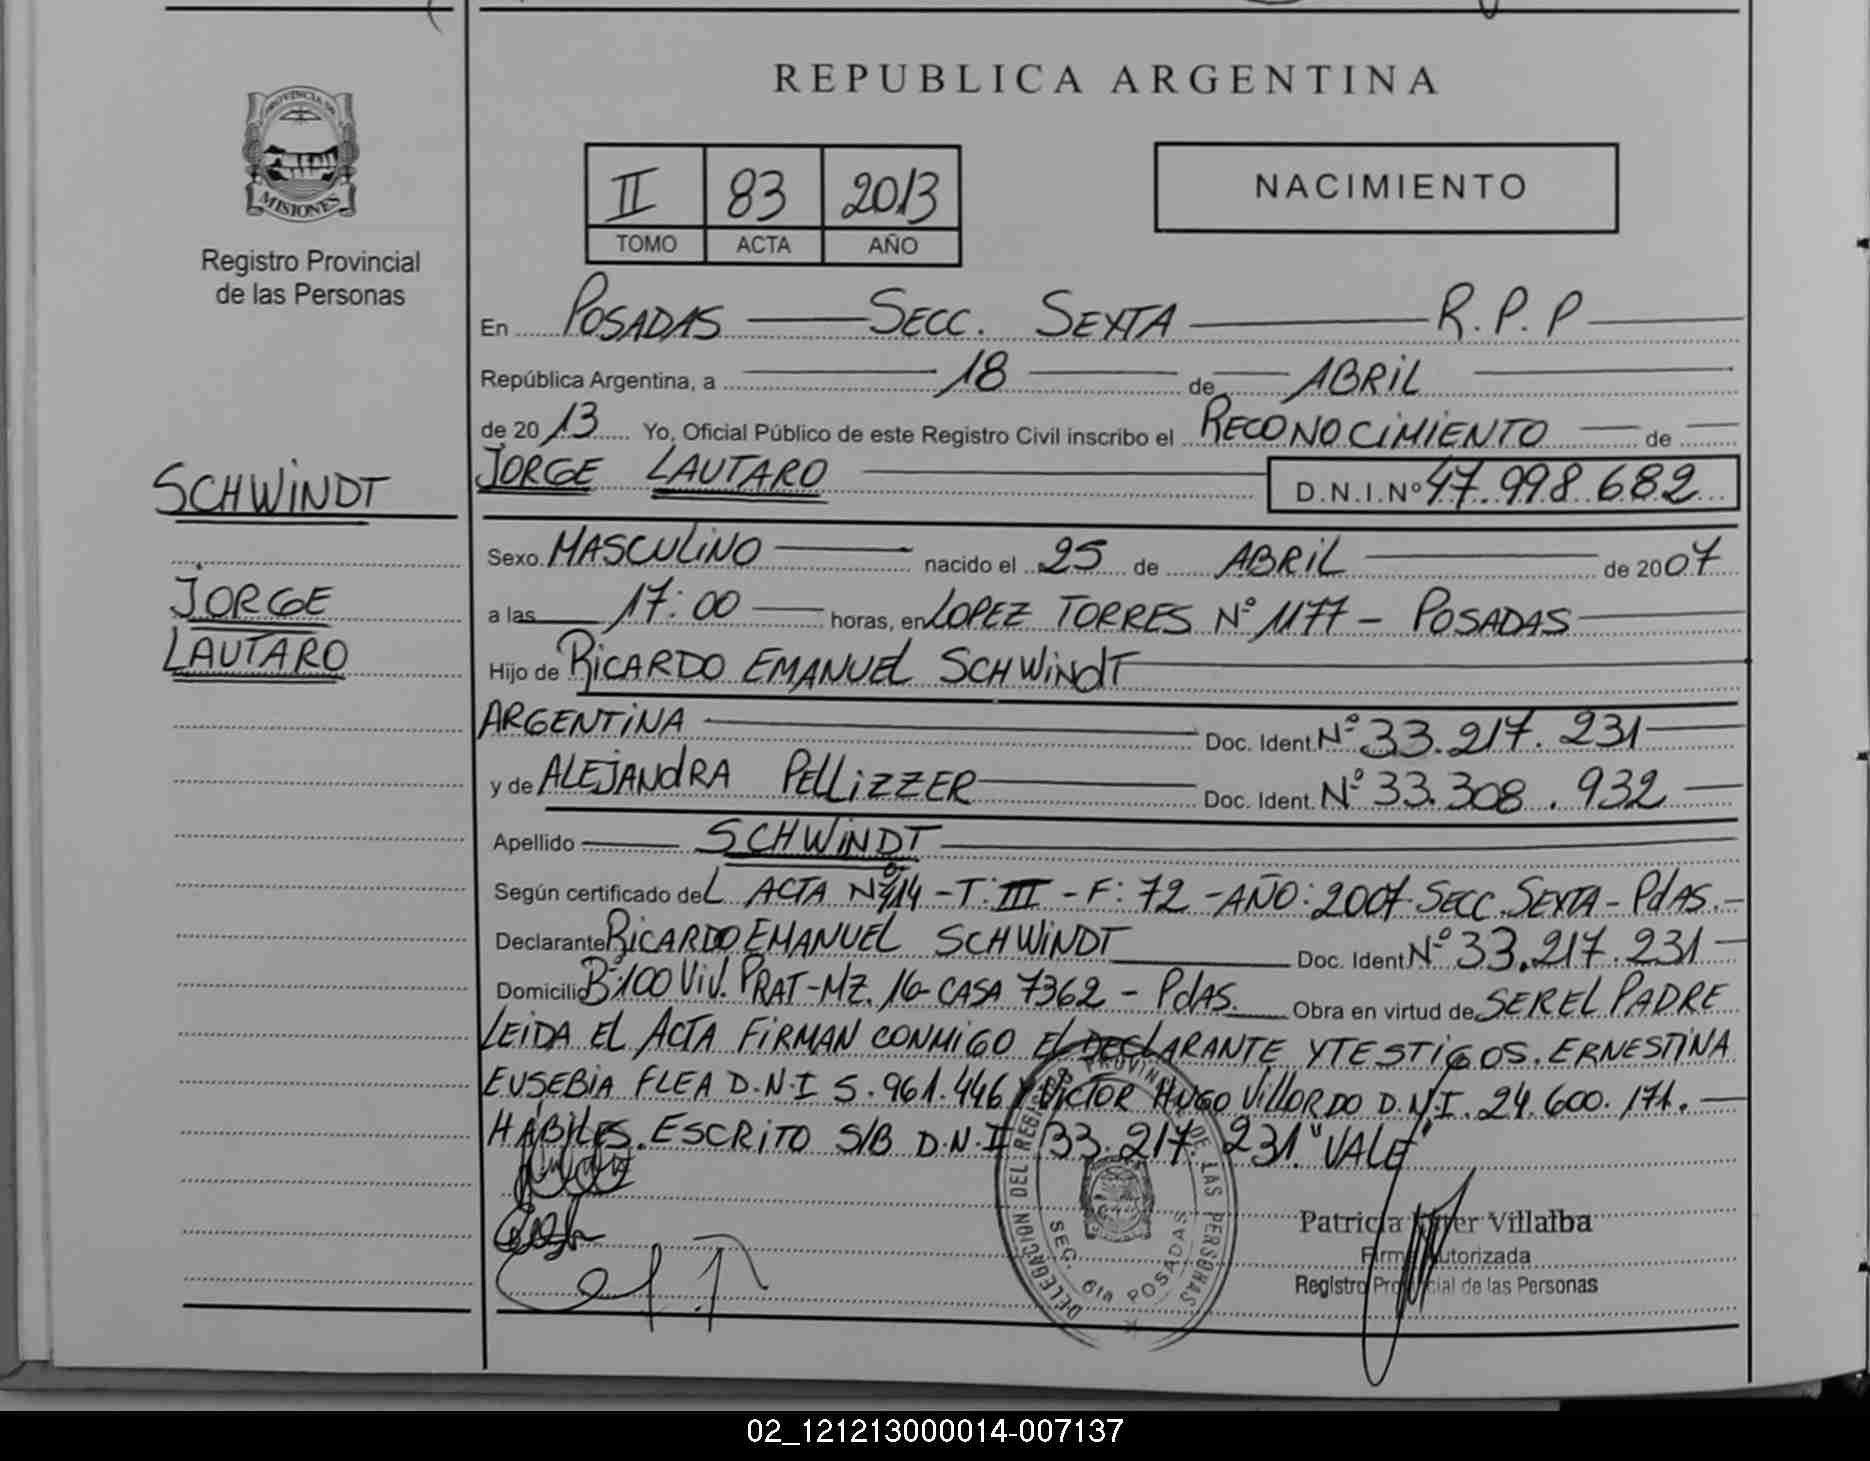 REPUBLICA ARGENTINA
PROVINCIA DE
MISIONES
Registro Provincial
de las Personas
II 83 2013
TOMO ACTA AÑO
NACIMIENTO
En POSADAS SECC. SEXTA R.P.P
República Argentina, a 18 de ABRIL
de 2013 Yo, Oficial Público de este Registro Civil inscribo el RECONOCIMIENTO de
SCHWINDT
JORGE LAUTARO D.N.I.Nº 47.998.682
Sexo MASCULINO nacido el 25 de ABRIL de 2007
JORGE
LAUTARO
a las 17:00 horas, en LOPEZ TORRES Nº 1177 - POSADAS
Hijo de RICARDO EMANUEL SCHWINDT
ARGENTINA Doc. Ident. Nº 33.217.231
y de ALEJANDRA PELLIZZER Doc. Ident. Nº 33.308.932
Apellido SCHWINDT
Según certificado del ACTA Nº 14 - T: III - F: 72 - AÑO: 2007 SECC. SEXTA - PdAS.
Declarante RICARDO EMANUEL SCHWINDT Doc. Ident Nº 33.217.231
Domicilio Bº 100 VIV. PRAT - MZ. 16 CASA 7362 - PdAS. Obra en virtud de SER EL PADRE
LEIDA EL ACTA FIRMAN CONMIGO EL DECLARANTE Y TESTIGOS. ERNESTINA
EUSEBIA FLEA D.N.I 5.961.446 Y VICTOR HUGO VILLORDO D.N.I. 24.600.171.
HÁBILES. ESCRITO S/B D.N.I 33.217.231. "VALE"
DELEGACION DEL REGISTRO PROVINCIAL DE LAS PERSONAS
SEC. 6ta POSADAS
Patricia Villalba
Firma Autorizada
Registro Provincial de las Personas
02_121213000014-007137